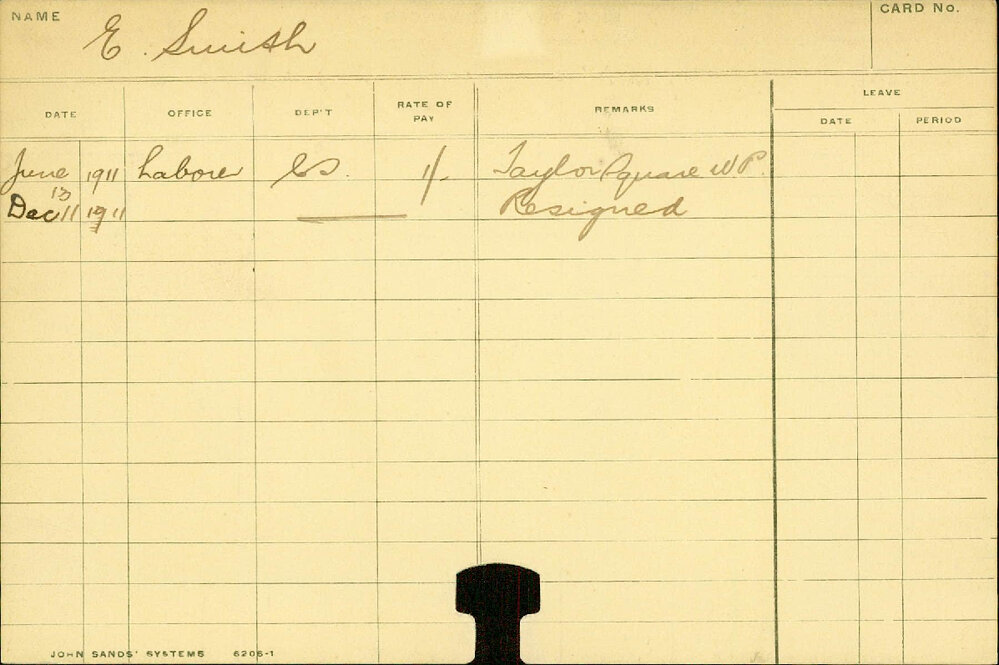 NAME E. Smith CARD No.
DATE OFFICE DEP'T RATE OF PAY REMARKS LEAVE
DATE PERIOD
June 1911 Laborer CS. 1/- Taylor Square WP.
13
Dec 11 1911 Resigned
JOHN SANDS' SYSTEMS 6206-1